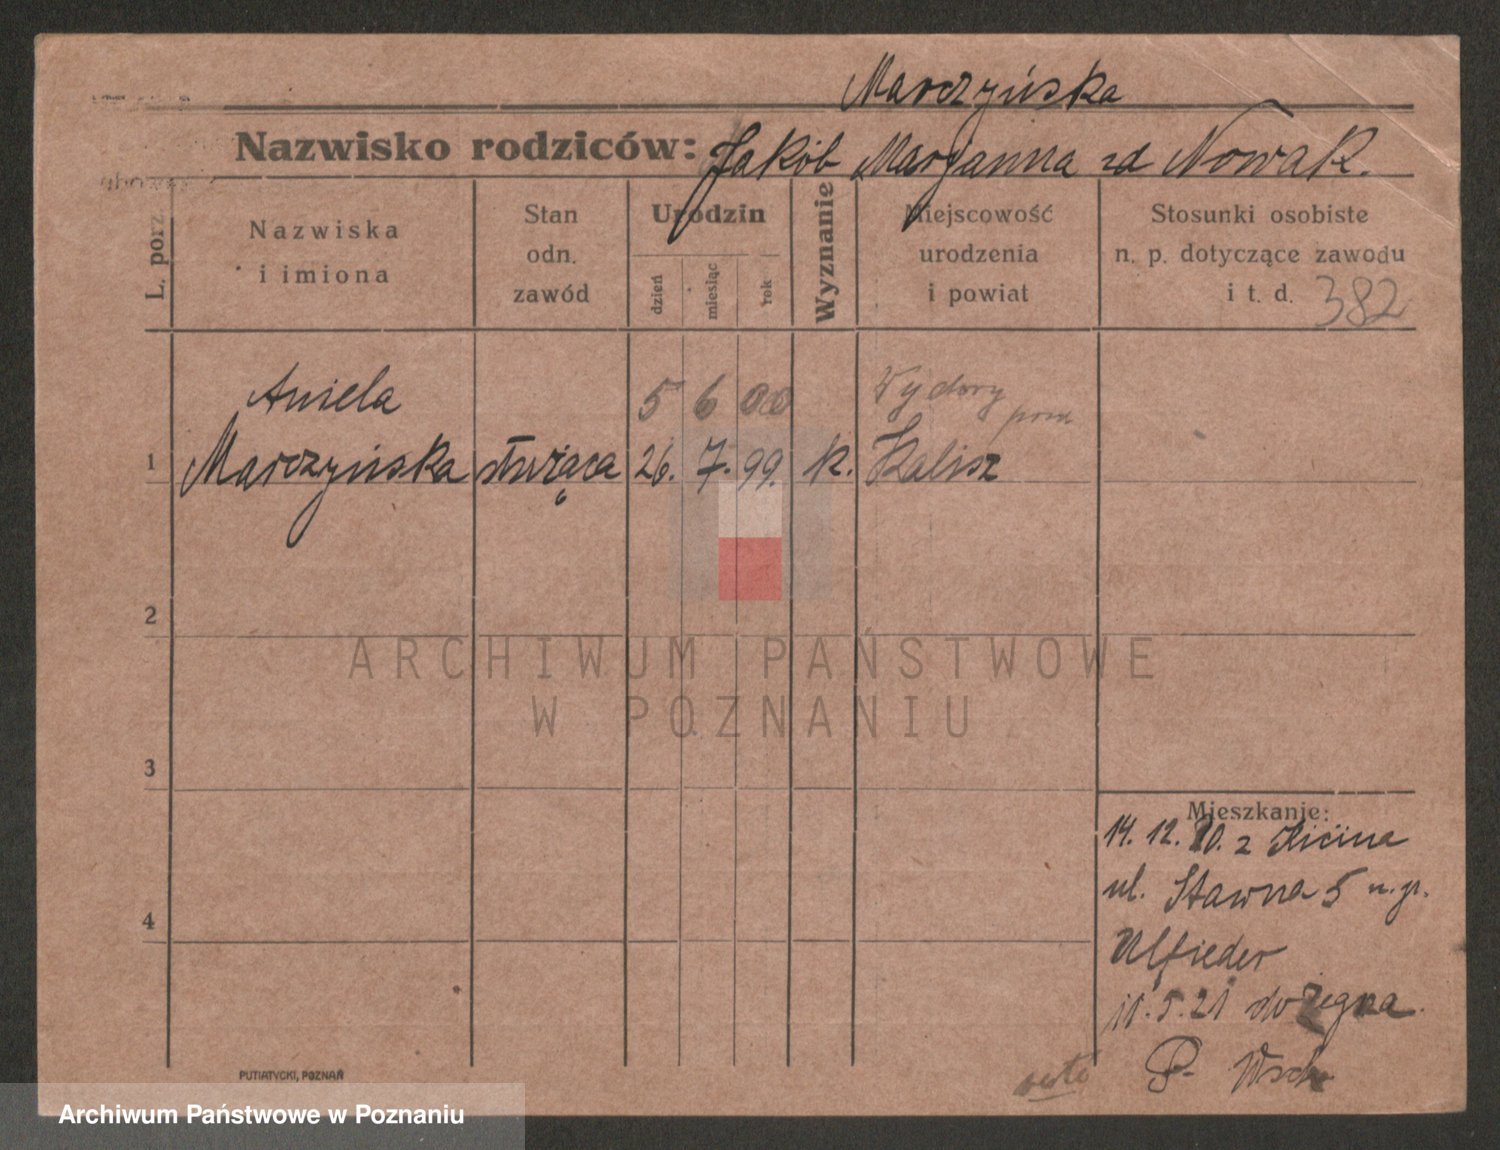 Marczyńska
Nazwisko rodziców: Jakób Marjanna zd Nowak.
L. porz.
Nazwiska
i imiona
Stan
odn.
zawód
Urodzin
dzień
miesiąc
rok
Wyznanie
Miejscowość
urodzenia
i powiat
Stosunki osobiste
n. p. dotyczące zawodu
i t. d. 382
Aniela 5 6 00 Wydory
1 Marczyńska służąca 26. 7. 99. k. Kalisz
2
ARCHIWUM PAŃSTWOWE
W POZNANIU
3
4
Mieszkanie:
14. 12. 20. z Kicina
ul. Stawna 5
Ulfieder
11. 5. 21 do
P. Wsch
PUTIATYCKI, POZNAŃ
Archiwum Państwowe w Poznaniu